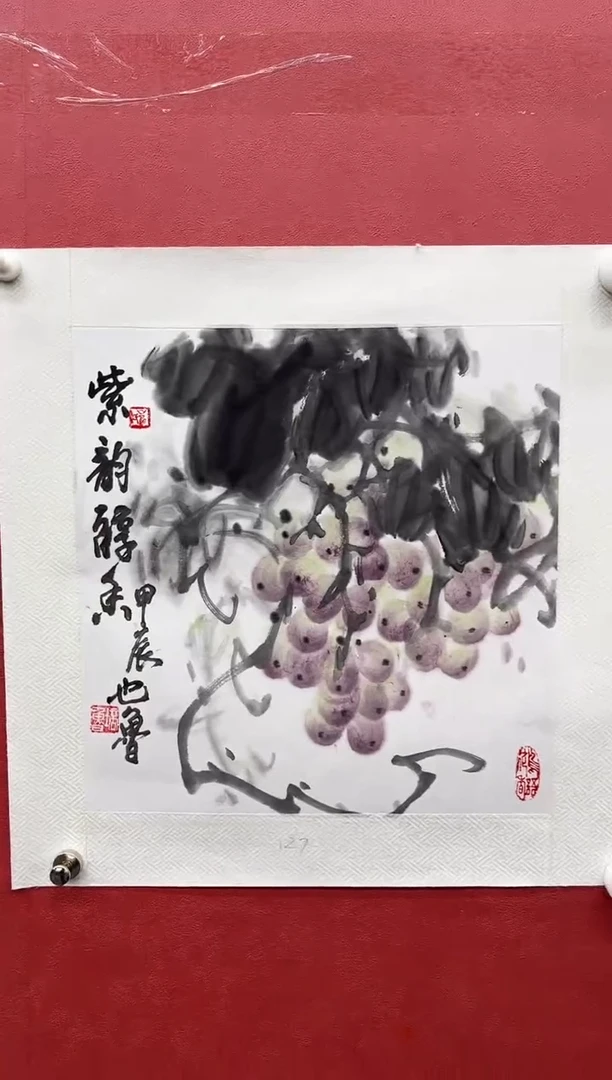 紫韵醇香
甲辰也鲁
127